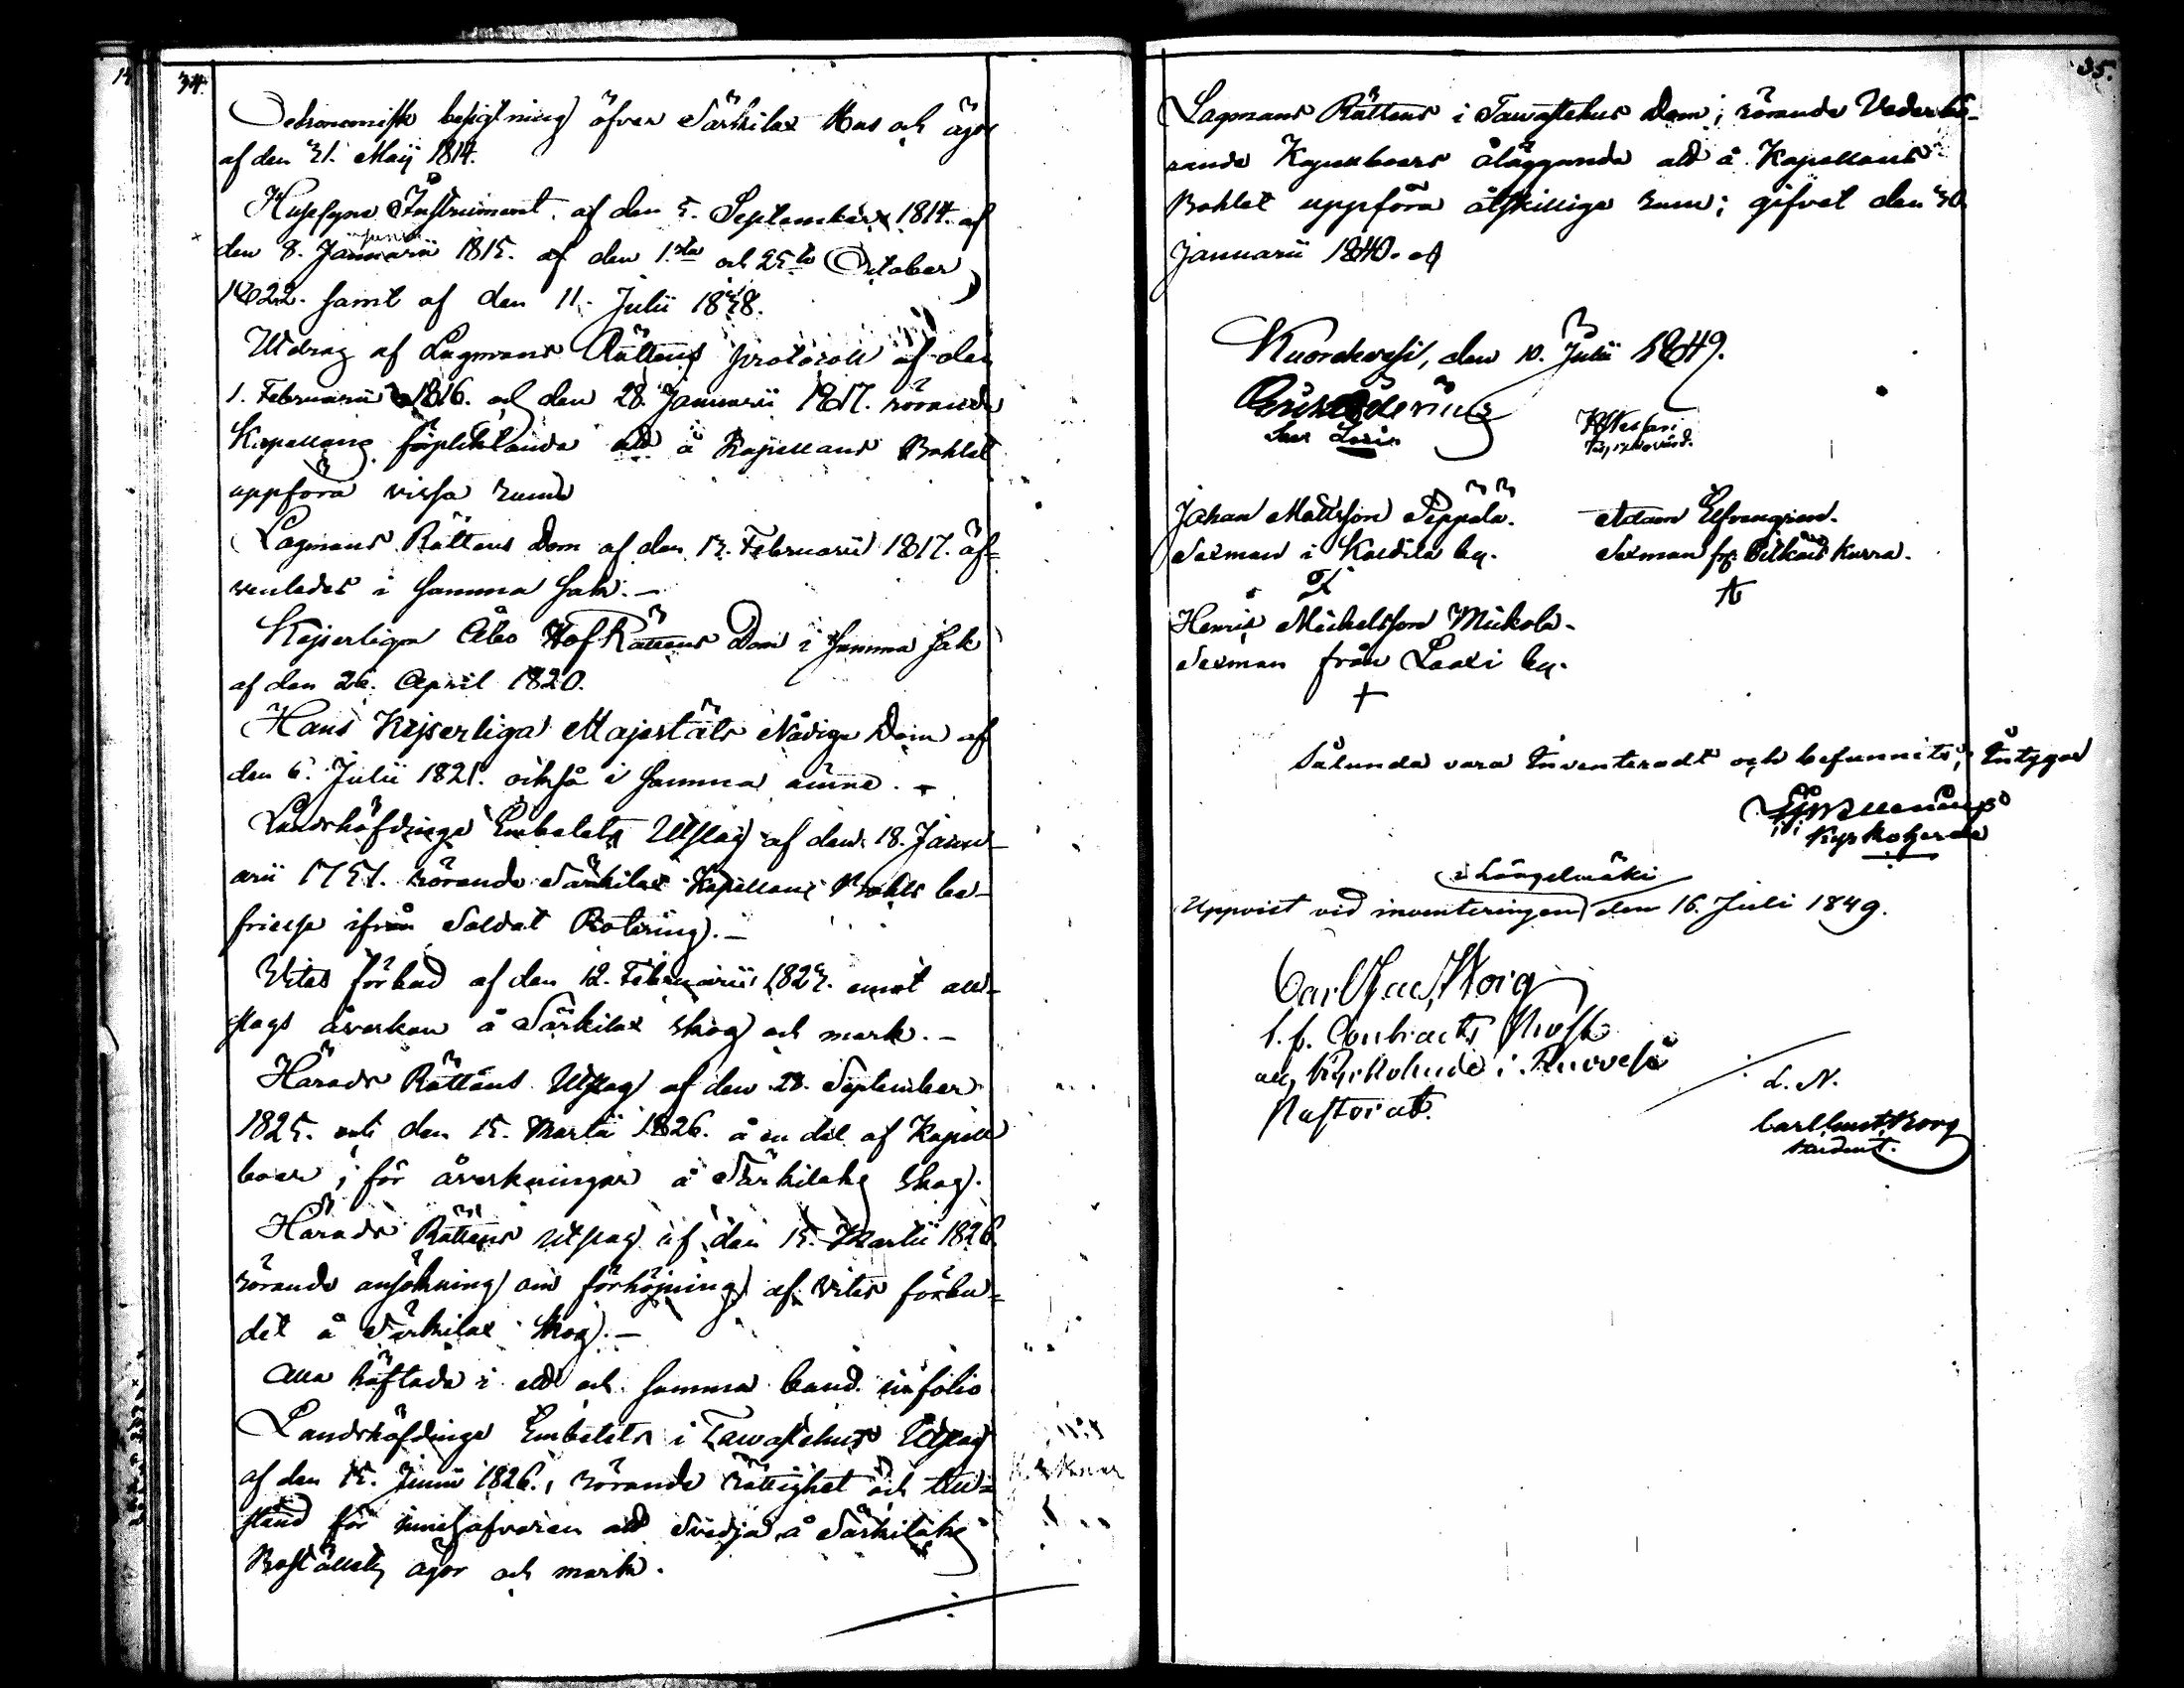 34.
Oekonomisk besigtning öfver Särkilax Hus och ägor
af den 31. Maij 1814.
Husesyns Instrument af den 5. September 1814. af
den 8. Januarii 1815. af den 1.sta och 25.te October
1822. samt af den 11. Julii 1838.
Utdrag af Lagmans Rättens protocoll af den
1. Februarii 1816. och den 28. Januarii 1817. rörande
Kapellans förpliktande att å Kapellans Bohlet
uppföra vissa rum
Lagmans Rättens Dom af den 13. Februarii 1817. äf-
venledes i samma sak. —
Kejserliga Åbo HofRättens Dom i samma sak
af den 26. April 1820.
Hans Kejserliga Majestäts Nådiga Dom af
den 6. Julii 1821. också i samma ämne. —
Landshöfdinge Embetets Utslag af den 18. Janu-
arii 1751. rörande Särkilax Kapellans Bohls be-
frielse ifrån Soldat Rotering. —
Vites förbud af den 12. Februarii 1823. emot all-
slags åverkan å Särkilax skog och mark. —
Härads Rättens Utslag af den 28. September
1825. och den 15. Martii 1826. å en del af Kapell
boer, för åverkningar å Särkilaks skog.
Härads Rättens Utslag af den 15. Martii 1826.
rörande ansökning om förhöjning af vites förbu-
det å Särkilax skog. —
Alla häftade i ett och samma band in folio
Landshöfdinge Embetets i Tawastehus Utslag
af den 15. Junii 1826., rörande rättighet och till-
stånd för innehafvaren att svedja å Särkilaks
Boställets ägor och mark.
35.
Lagmans Rättens i Tawastehus Dom, rörande Vederbö-
rande Kapellboers åläggande att å Kapellans
Bohlet uppföra åtskillige rum; gifvet den 30
Januarii 1840. af
Kuorehvesi, den 10. Julii 1849.
Johan Mattsson Seppälä.
Adam Elfvengren.
Sexman i Kaedila by.
Sexman fr. Pitkäis Kurra.
Henric Michelsson Mickola.
Sexman från Laaxi by.
+
Sålunda vara Inventeradt och befunnits, Intygar
Kyrkoherde
i Längelmäki
Uppvist vid inventeringen den 16. Juli 1849.
Carl Gust. Borg
t. f. Contracts Prost
och Kyrkoherde i Ruovesi
Pastorat.
L. N.
Carl Gust. Borg
Student.